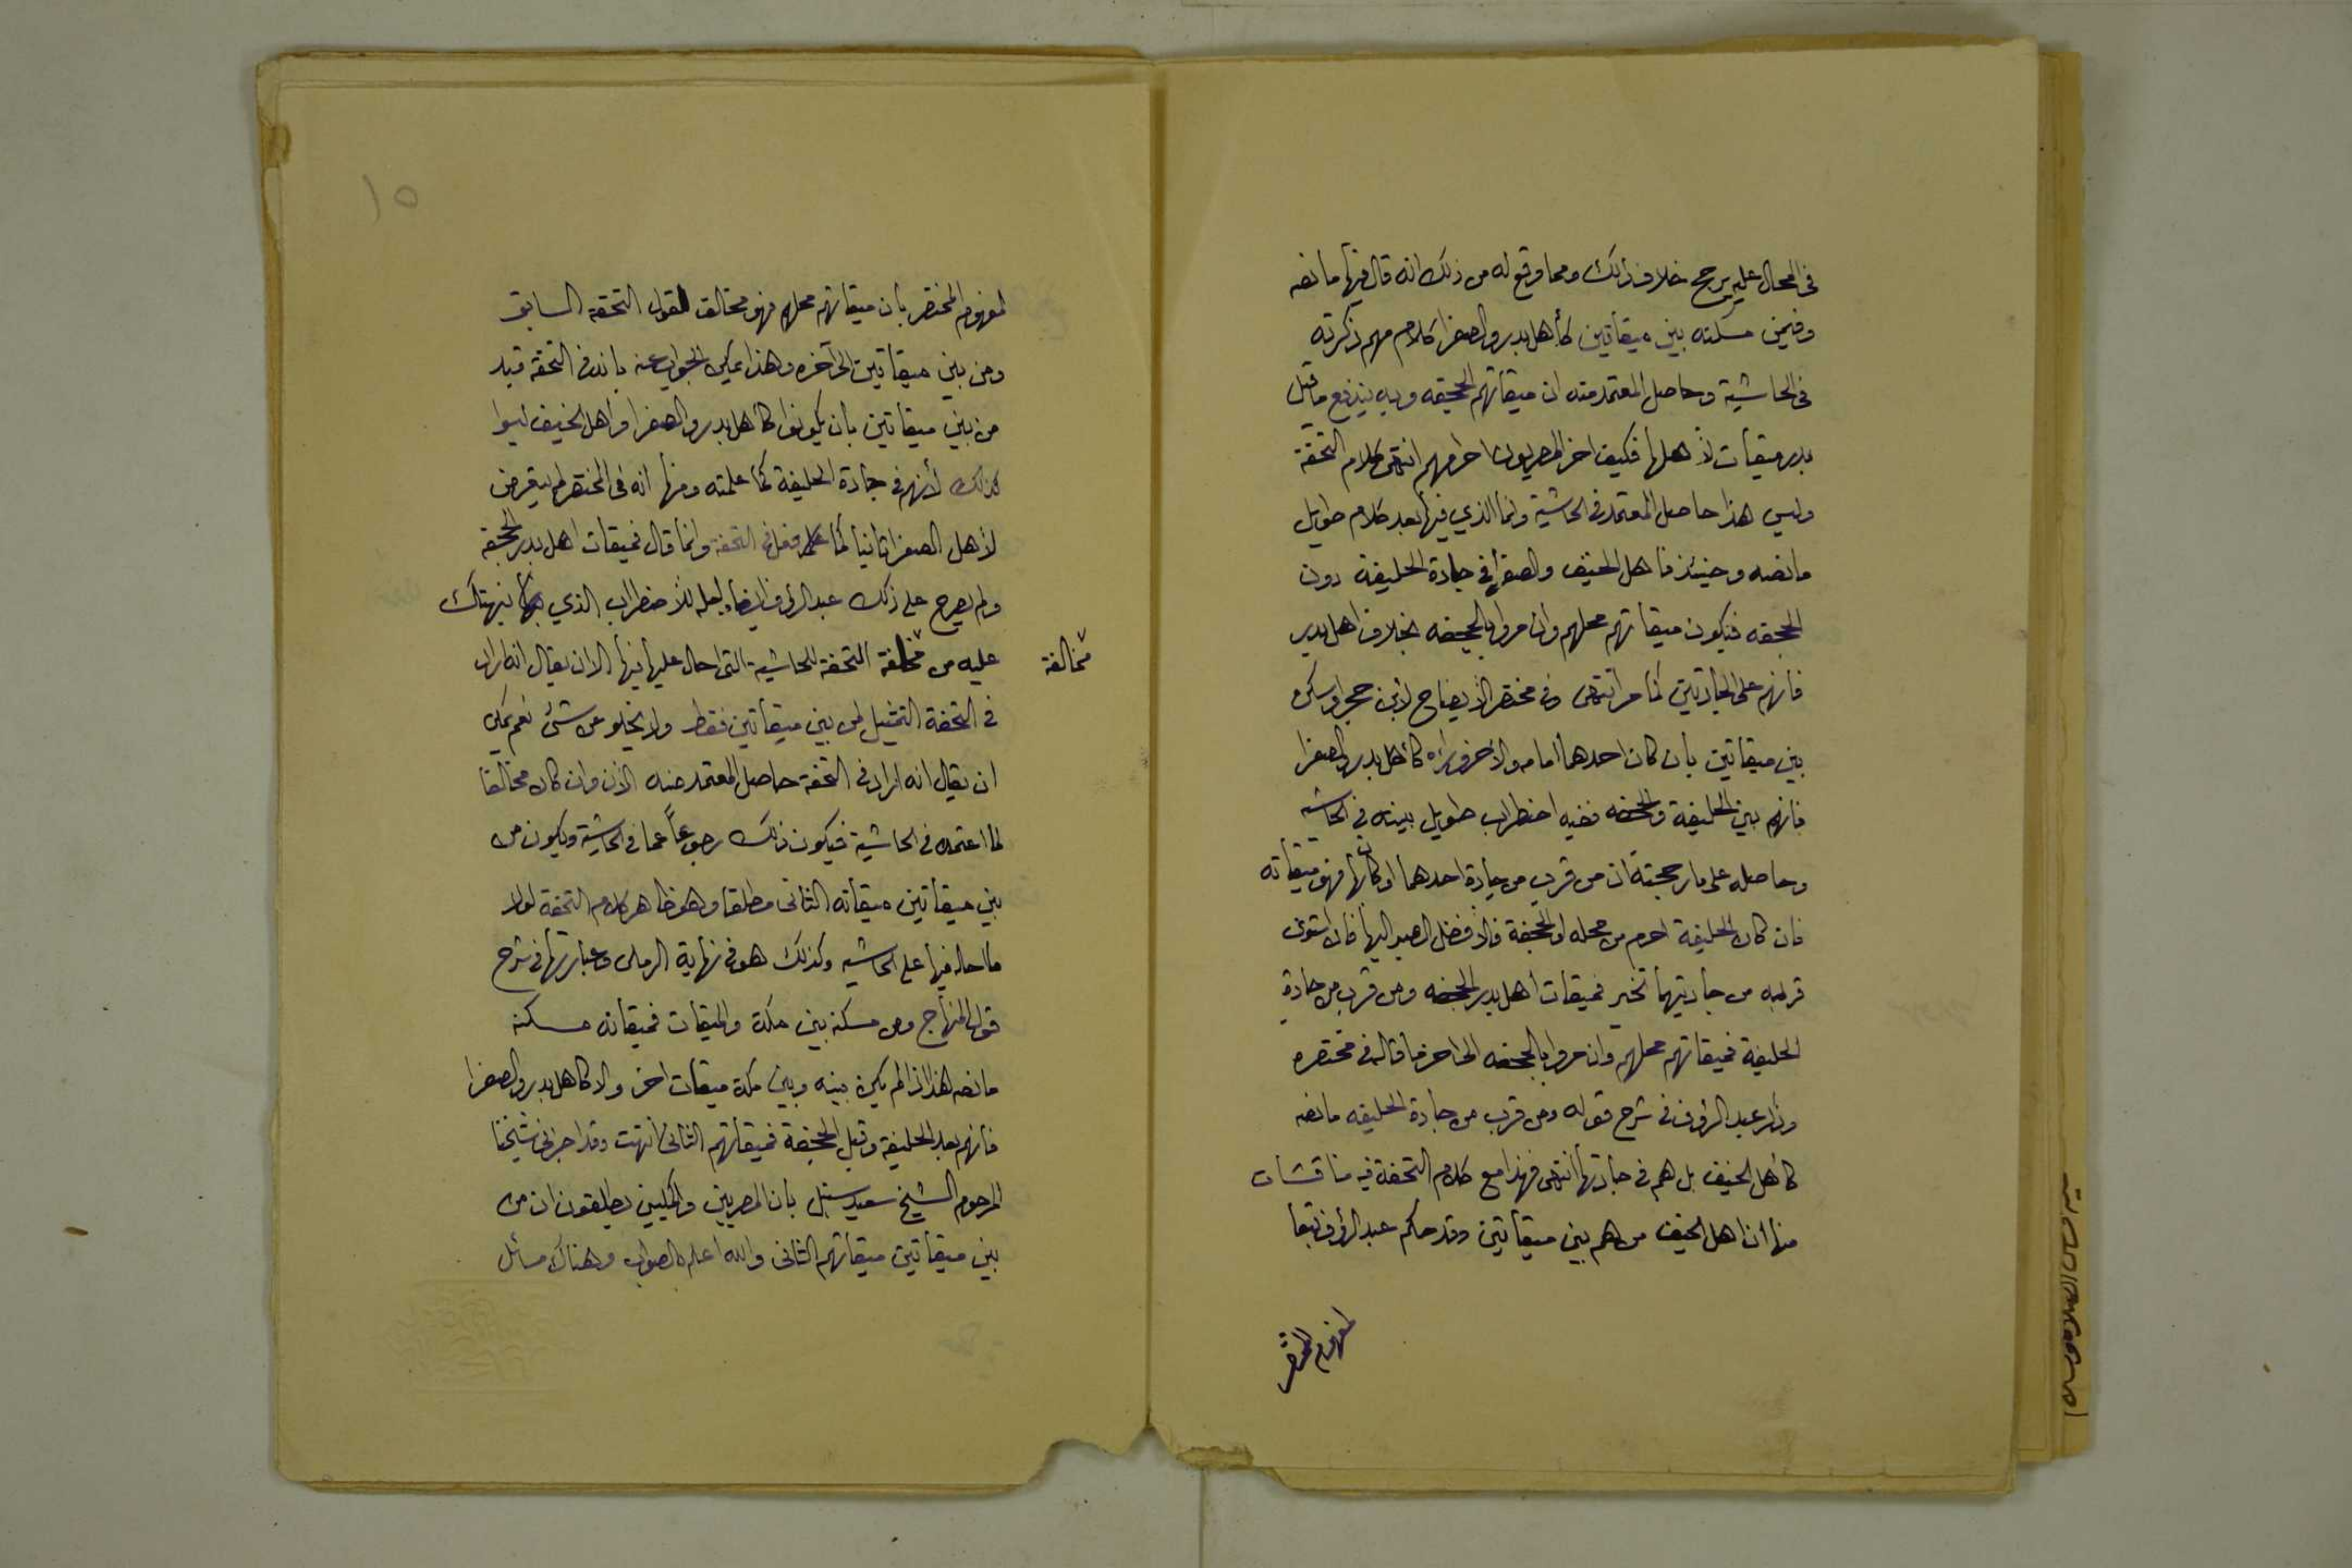 في المحال عليه يرجح خلاف ذلك ومما وقع له من ذلك انه قال فيها ما نصه
وفيمن مسكنه بين ميقاتين كأهل بدر والصفرا كلام مهم ذكرته
في الحاشية وحاصل المعتمد منه ان ميقاتهم الجحفه وبه يندفع ما قيل
بدر ميقات لأهلها فكيف اخر المصريون احرامهم انتهى كلام التحفة
وليس هذا حاصل المعتمد في الحاشية وانما الذي فيها بعد كلام طويل
ما نصه وحينئذ فاهل الخيف والصفرا في جادة الحليفة دون
الجحفه فيكون ميقاتهم محلهم وان مروا بالجحفه بخلاف اهل بدر
فانهم على الجادتين كما مر انتهى وفي مختصر الأيضاح لأبن حجر او مسكن
بين ميقاتين بأن كان احدهما امامه والأخر وراءه كأهل بدر والصفرا
فانهم بين الحليفة والجحفه ففيه اضطراب طويل بينته في الحاشيه
وحاصله على ما رجحته ان من قرب من جادة احدهما او كان بها فهو ميقاته
فان كان الحليفة احرم من محله او الجحفة فالأفضل الصبر اليها فان استوى
قربه من جادتيهما تخير فميقات اهل بدر الجحفه ومن قرب من جادة
الحليفة فميقاتهم محلهم وان مروا بالجحفه الى اخر ما قاله في مختصره
وزاد عبد الرؤف في شرح قوله ومن قرب من جادة الحليفه ما نصه
كأهل الخيف بل هم في جادتها انتهى فهذا مع كلام التحفة فيه مناقشات
منها ان اهل الخيف من هم بين ميقاتين وقد حكم عبد الرؤف تبعا
لمفهوم المختصر
١٥
لمفهوم المختصر بان ميقاتهم محلهم فهو مخالف لقول التحفة السابق
ومن بين ميقاتين الى آخره وهذا يمكن الجواب عنه بانه في التحفة قيد
من بين ميقاتين بأن يكونوا كأهل بدر والصفرا واهل الخيف ليسوا
كذلك لأنهم في جادة الحليفة كما علمته ومنها انه في المختصر لم يتعرض
لأهل الصفرا ثانيا كما فعل في التحفة وانما قال فميقات اهل بدر الجحفة
ولم يصرح على ذلك عبد الرؤف ايضا ولعله للأضطراب الذي نبهتك
عليه من مخالفة التحفة للحاشية التي احال عليها فيها الا ان يقال انه اراد
مخالفة
في التحفة التمثيل لمن بين ميقاتين فقط ولا يخلو عن شئ نعم يمكن
ان يقال انه اراد في التحفة حاصل المعتمد منه الآن وان كان مخالفا
لما اعتمده في الحاشية فيكون ذلك رجوعاً عما في الحاشية ويكون من
بين ميقاتين ميقاته الثاني مطلقا وهو ظاهر كلام التحفة لولا
ما احاله فيها على الحاشيه وكذلك هو في نهاية الرملى وعبارتها في شرح
قول المنهاج ومن مسكنه بين مكة والميقات فميقاته مسكنه
ما نصه هذا اذا لم يكن بينه وبين مكة ميقات اخر والا كاهل بدر والصفرا
فانهم بعد الحليفة وقبل الجحفة فميقاتهم الثاني انتهت وقد اخبرني شيخنا
المرحوم الشيخ سعيد سنبل بان المصريين والمكيين يطلقون ان من
بين ميقاتين ميقاتهم الثاني والله اعلم بالصواب وهناك مسائل